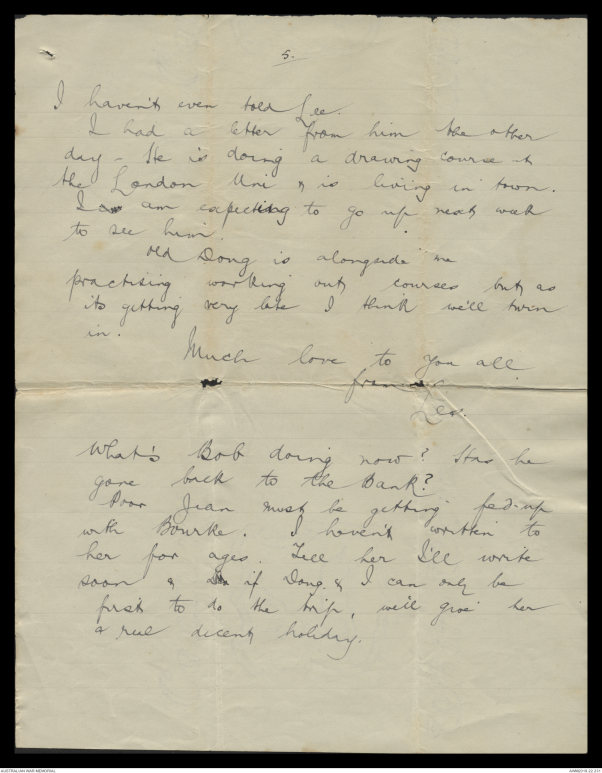 5.
I haven't even told Lee.
I had a letter from him the other
day - He is doing a drawing course at
the London Uni & is living in town.
I am expecting to go up next week
to see him.
Old Doug is alongside me
practising working out courses but as
its getting very late I think we'll turn
in.
Much love to you all
from
Les.
What's Bob doing now? Has he
gone back to the Bank?
Poor Jean must be getting fed-up
with Bourke. I haven't written to
her for ages. Tell her I'll write
soon & if Doug & I can only be
first to do the trip, we'll give her
a real decent holiday.
AUSTRALIAN WAR MEMORIAL